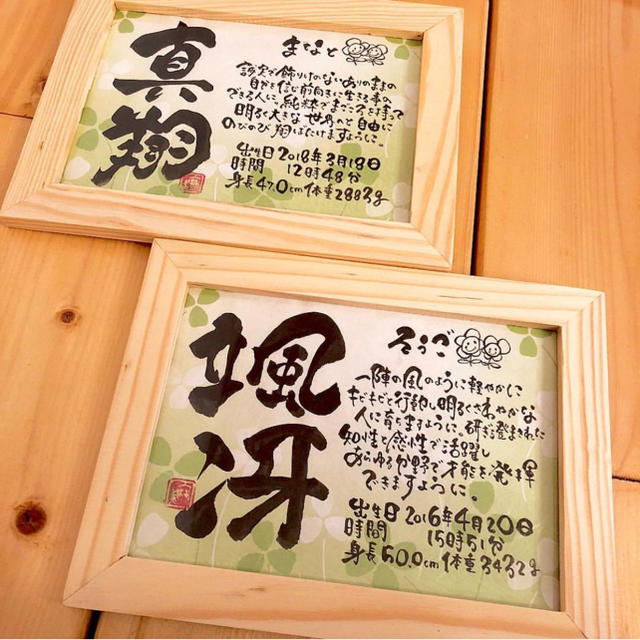 真翔
まなと
誠実で飾りけのないありのままの
自分を信じ前向きに生きる事の
できる人に。純粋でまごころを持って
明るく大きな世界のもと自由に
のびのび翔ばたけますように。
出生日2018年3月18日
時間 12時48分
身長47.0cm体重2883g
颯冴
そうご
一陣の風のように軽やかに
キビキビと行動し明るくさわやかな
人に育ちますように。研ぎ澄まされた
知性と感性で活躍し
あらゆる分野で才能を発揮
できますように。
出生日2016年4月20日
時間 15時51分
身長50.0cm体重3432g